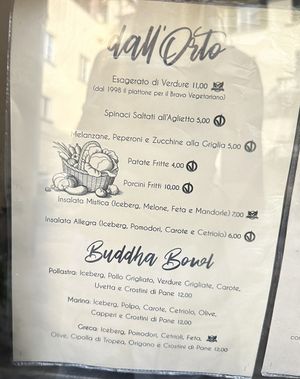 dall'Orto
Esagerato di Verdure 11,00
(dal 1998 il piattone per il Bravo Vegetariano)
Spinaci Saltati all'Aglietto 5,00
Melanzane, Peperoni e Zucchine alla Griglia 5,00
Patate Fritte 4,00
Porcini Fritti 10,00
Insalata Mistica (Iceberg, Melone, Feta e Mandorle) 7,00
Insalata Allegra (Iceberg, Pomodori, Carote e Cetriolo) 6,00
Buddha Bowl
Pollastra: Iceberg, Pollo Grigliato, Verdure Grigliate, Carote,
Uvetta e Crostini di Pane 12,00
Marina: Iceberg, Polpo, Carote, Cetriolo, Olive,
Capperi e Crostini di Pane 12,00
Greca: Iceberg, Pomodori, Cetrioli, Feta,
Olive, Cipolla di Tropea, Origano e Crostini di Pane 12,00